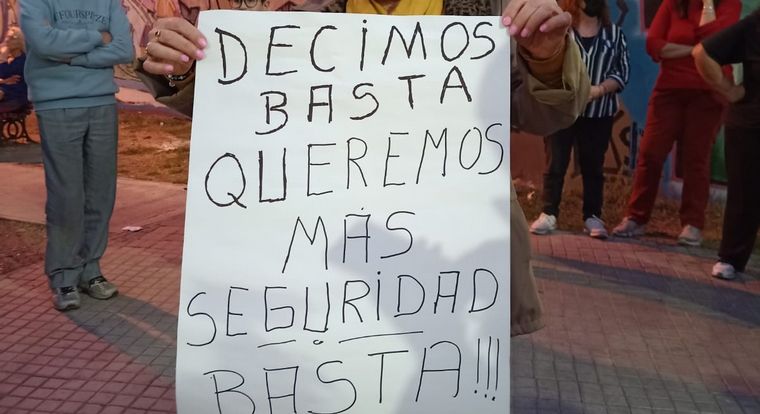 FOURSPEZE
DECIMOS
BASTA
QUEREMOS
MÁS
SEGURIDAD
BASTA!!!